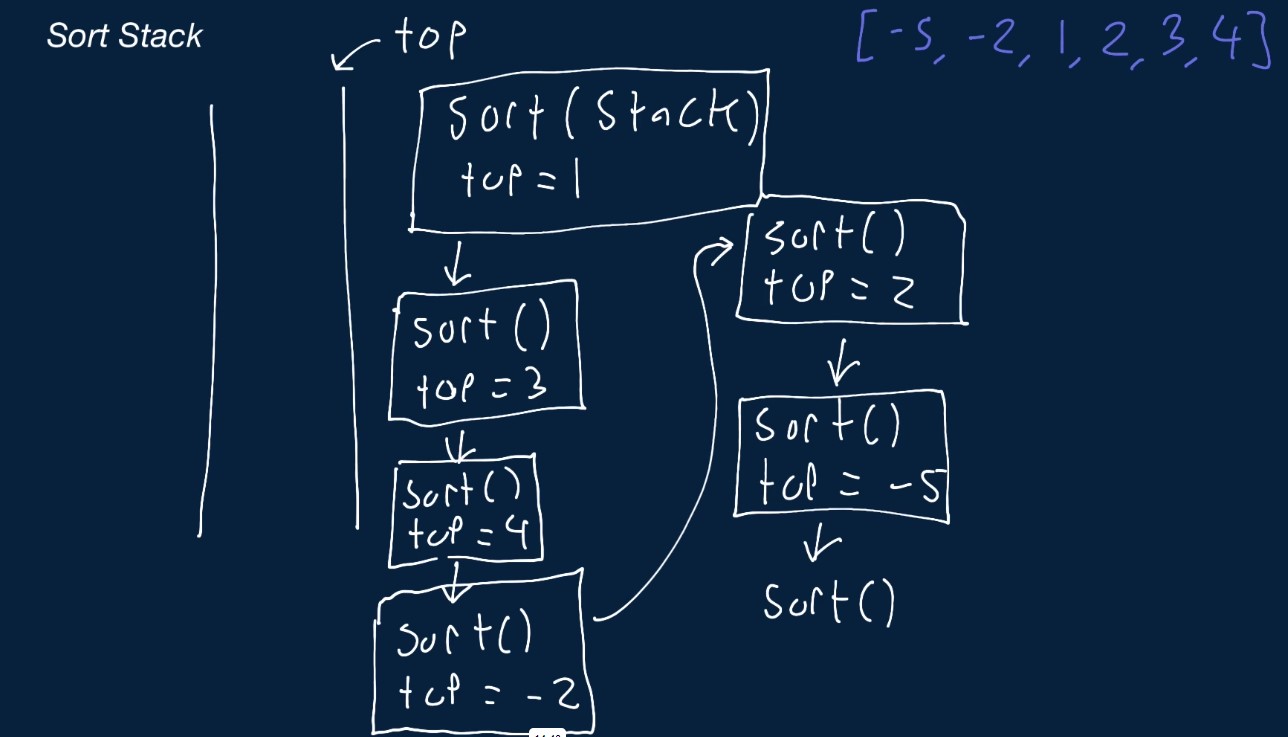 Sort Stack
top
[-5, -2, 1, 2, 3, 4]
Sort(Stack)
top = 1
sort()
top = 3
sort()
top = 4
sort()
top = -2
sort()
top = 2
sort()
top = -5
sort()